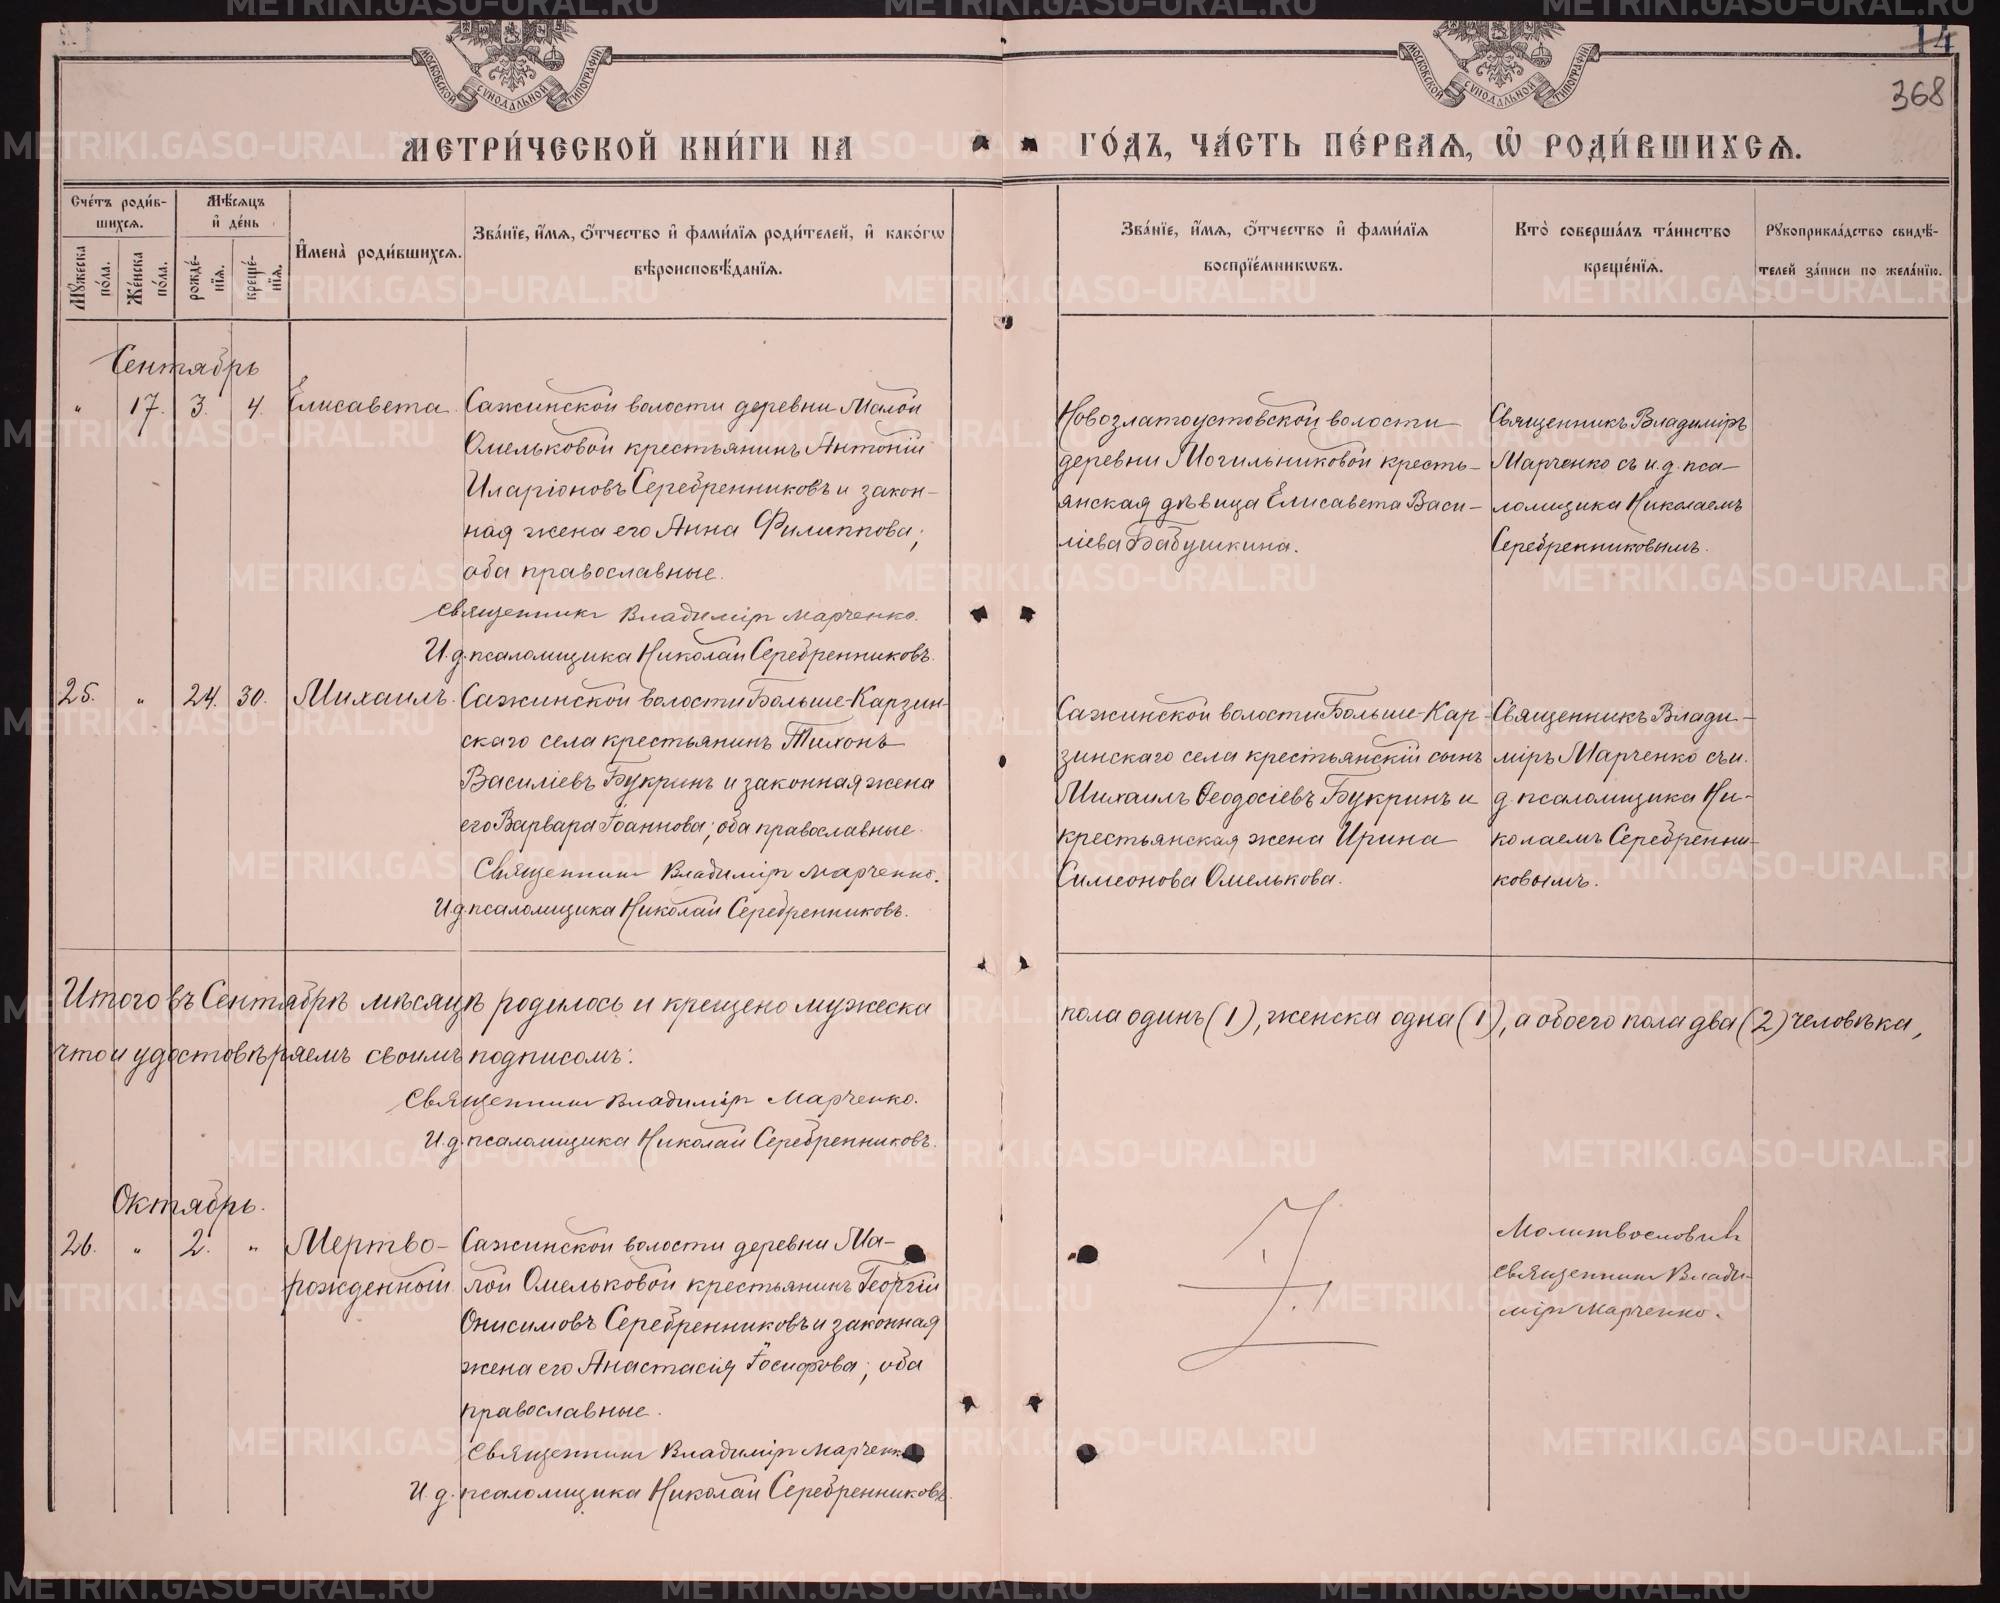 14
368
МОСКОВСКОЙ СѴНОДАЛЬНОЙ ТИПОГРАФІИ
МОСКОВСКОЙ СѴНОДАЛЬНОЙ ТИПОГРАФІИ
МЕТРИ́ЧЕСКОЙ КНИ́ГИ НА
ГО́ДЪ, ЧА́СТЬ ПЕ́РВАѦ, Ѡ҆ РОДИ́ВШИХСѦ.
Сче́тъ роди́в-
шихсѧ.
Мꙋ́жеска по́ла.
Же́нска по́ла.
Мѣ́сѧцъ
и҆ де́нь
рожде́-нїѧ.
креще́-нїѧ.
И҆мена̀ роди́вшихсѧ.
Зва́нїе, и҆́мѧ, ѻ҆́тчество и҆ фами́лїѧ роди́телей, и҆ како́гѡ
вѣроисповѣ́данїѧ.
Зва́нїе, и҆́мѧ, ѻ҆́тчество и҆ фами́лїѧ
воспрїе́мникѡвъ.
Кто̀ соверша́лъ та́инство
креще́нїѧ.
Рꙋкоприкла́дство свидѣ́-
телей за́писи по жела́нїю.
Сентябрь
" 17. 3. 4. Елисавета.
Сажинской волости деревни Малой
Омельковой крестьянинъ Антоній
Иларіоновъ Серебренниковъ и закон-
ная жена его Анна Филиппова;
оба православные.
Священникъ Владиміръ Марченко.
И. д. псаломщика Николай Серебренниковъ.
Новозлатоустовской волости
деревни Могильниковой кресть-
янская дѣвица Елисавета Васи-
ліева Бабушкина.
Священникъ Владиміръ
Марченко съ и. д. пса-
ломщика Николаемъ
Серебренниковымъ.
25. " 24. 30. Михаилъ.
Сажинской волости Больше-Карзин-
скаго села крестьянинъ Тихонъ
Василіевъ Букринъ и законная жена
его Варвара Іоаннова; оба православные.
Священникъ Владиміръ Марченко.
И. д. псаломщика Николай Серебренниковъ.
Сажинской волости Больше-Кар-
зинскаго села крестьянскій сынъ
Михаилъ Ѳеодосіевъ Букринъ и
крестьянская жена Ирина
Симеонова Омелькова.
Священникъ Влади-
міръ Марченко съ и.
д. псаломщика Ни-
колаемъ Серебренни-
ковымъ.
Итого въ Сентябрѣ мѣсяцѣ родилось и крещено мужеска
пола одинъ (1), женска одна (1), а обоего пола два (2) человѣка,
что и удостовѣряемъ своимъ подписомъ:
Священникъ Владиміръ Марченко.
И. д. псаломщика Николай Серебренниковъ.
Октябрь.
26. " 2. " Мертво-
рожденный.
Сажинской волости деревни Ма-
лой Омельковой крестьянинъ Георгій
Онисимовъ Серебренниковъ и законная
жена его Анастасія Іосифова; оба
православные.
Священникъ Владиміръ Марченко
И. д. псаломщика Николай Серебренниковъ.
Молитвословилъ
священникъ Влади-
міръ Марченко.
METRIKI.GASO-URAL.RU